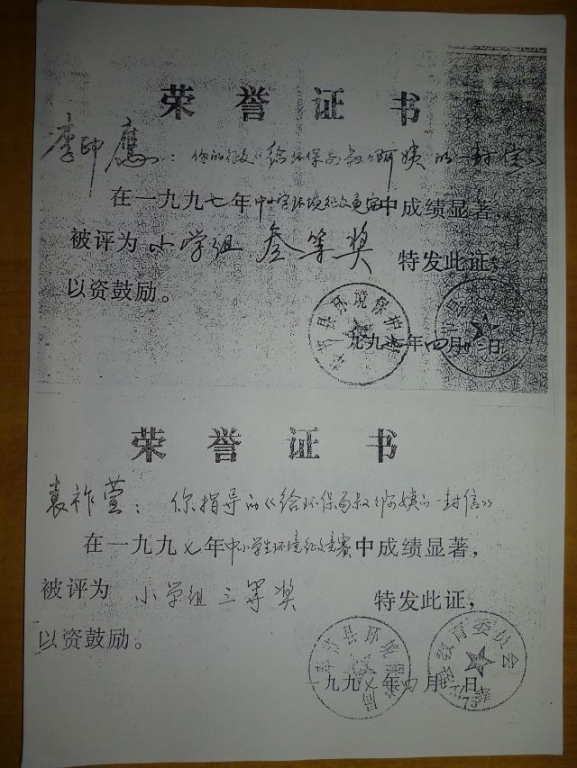 荣誉证书
廖印鹰：你的征文《给环保局叔叔阿姨的一封信》
在一九九七年中小学环境征文竞赛中成绩显著，
被评为小学组叁等奖 特发此证，
以资鼓励。
县环境保护局
一九九七年四月 日
荣誉证书
袁祚萱：你指导的《给环保局叔叔阿姨的一封信》
在一九九七年中小学生环境征文竞赛中成绩显著，
被评为 小学组三等奖 特发此证，
以资鼓励。
县环境保护局
县教育委员会
一九九七年四月 日